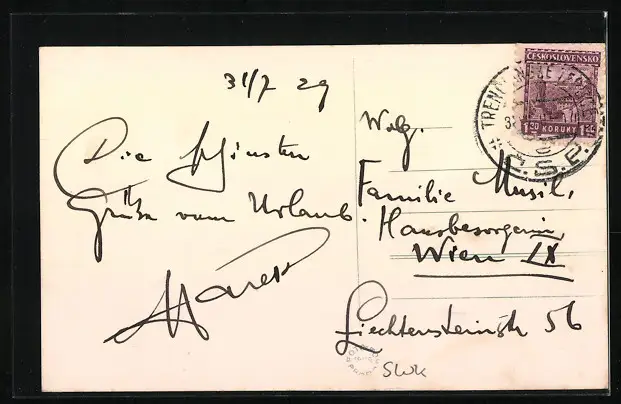 31/7 29
Die schönsten
Grüße vom Urlaub
Marek
ČESKOSLOVENSKO
1.20 KORUNY 1.20
TREN
Č.S.R.
Wolg.
Familie Musil,
Hausbesorgerin,
Wien IX
Liechtensteinstr 56
Slwk